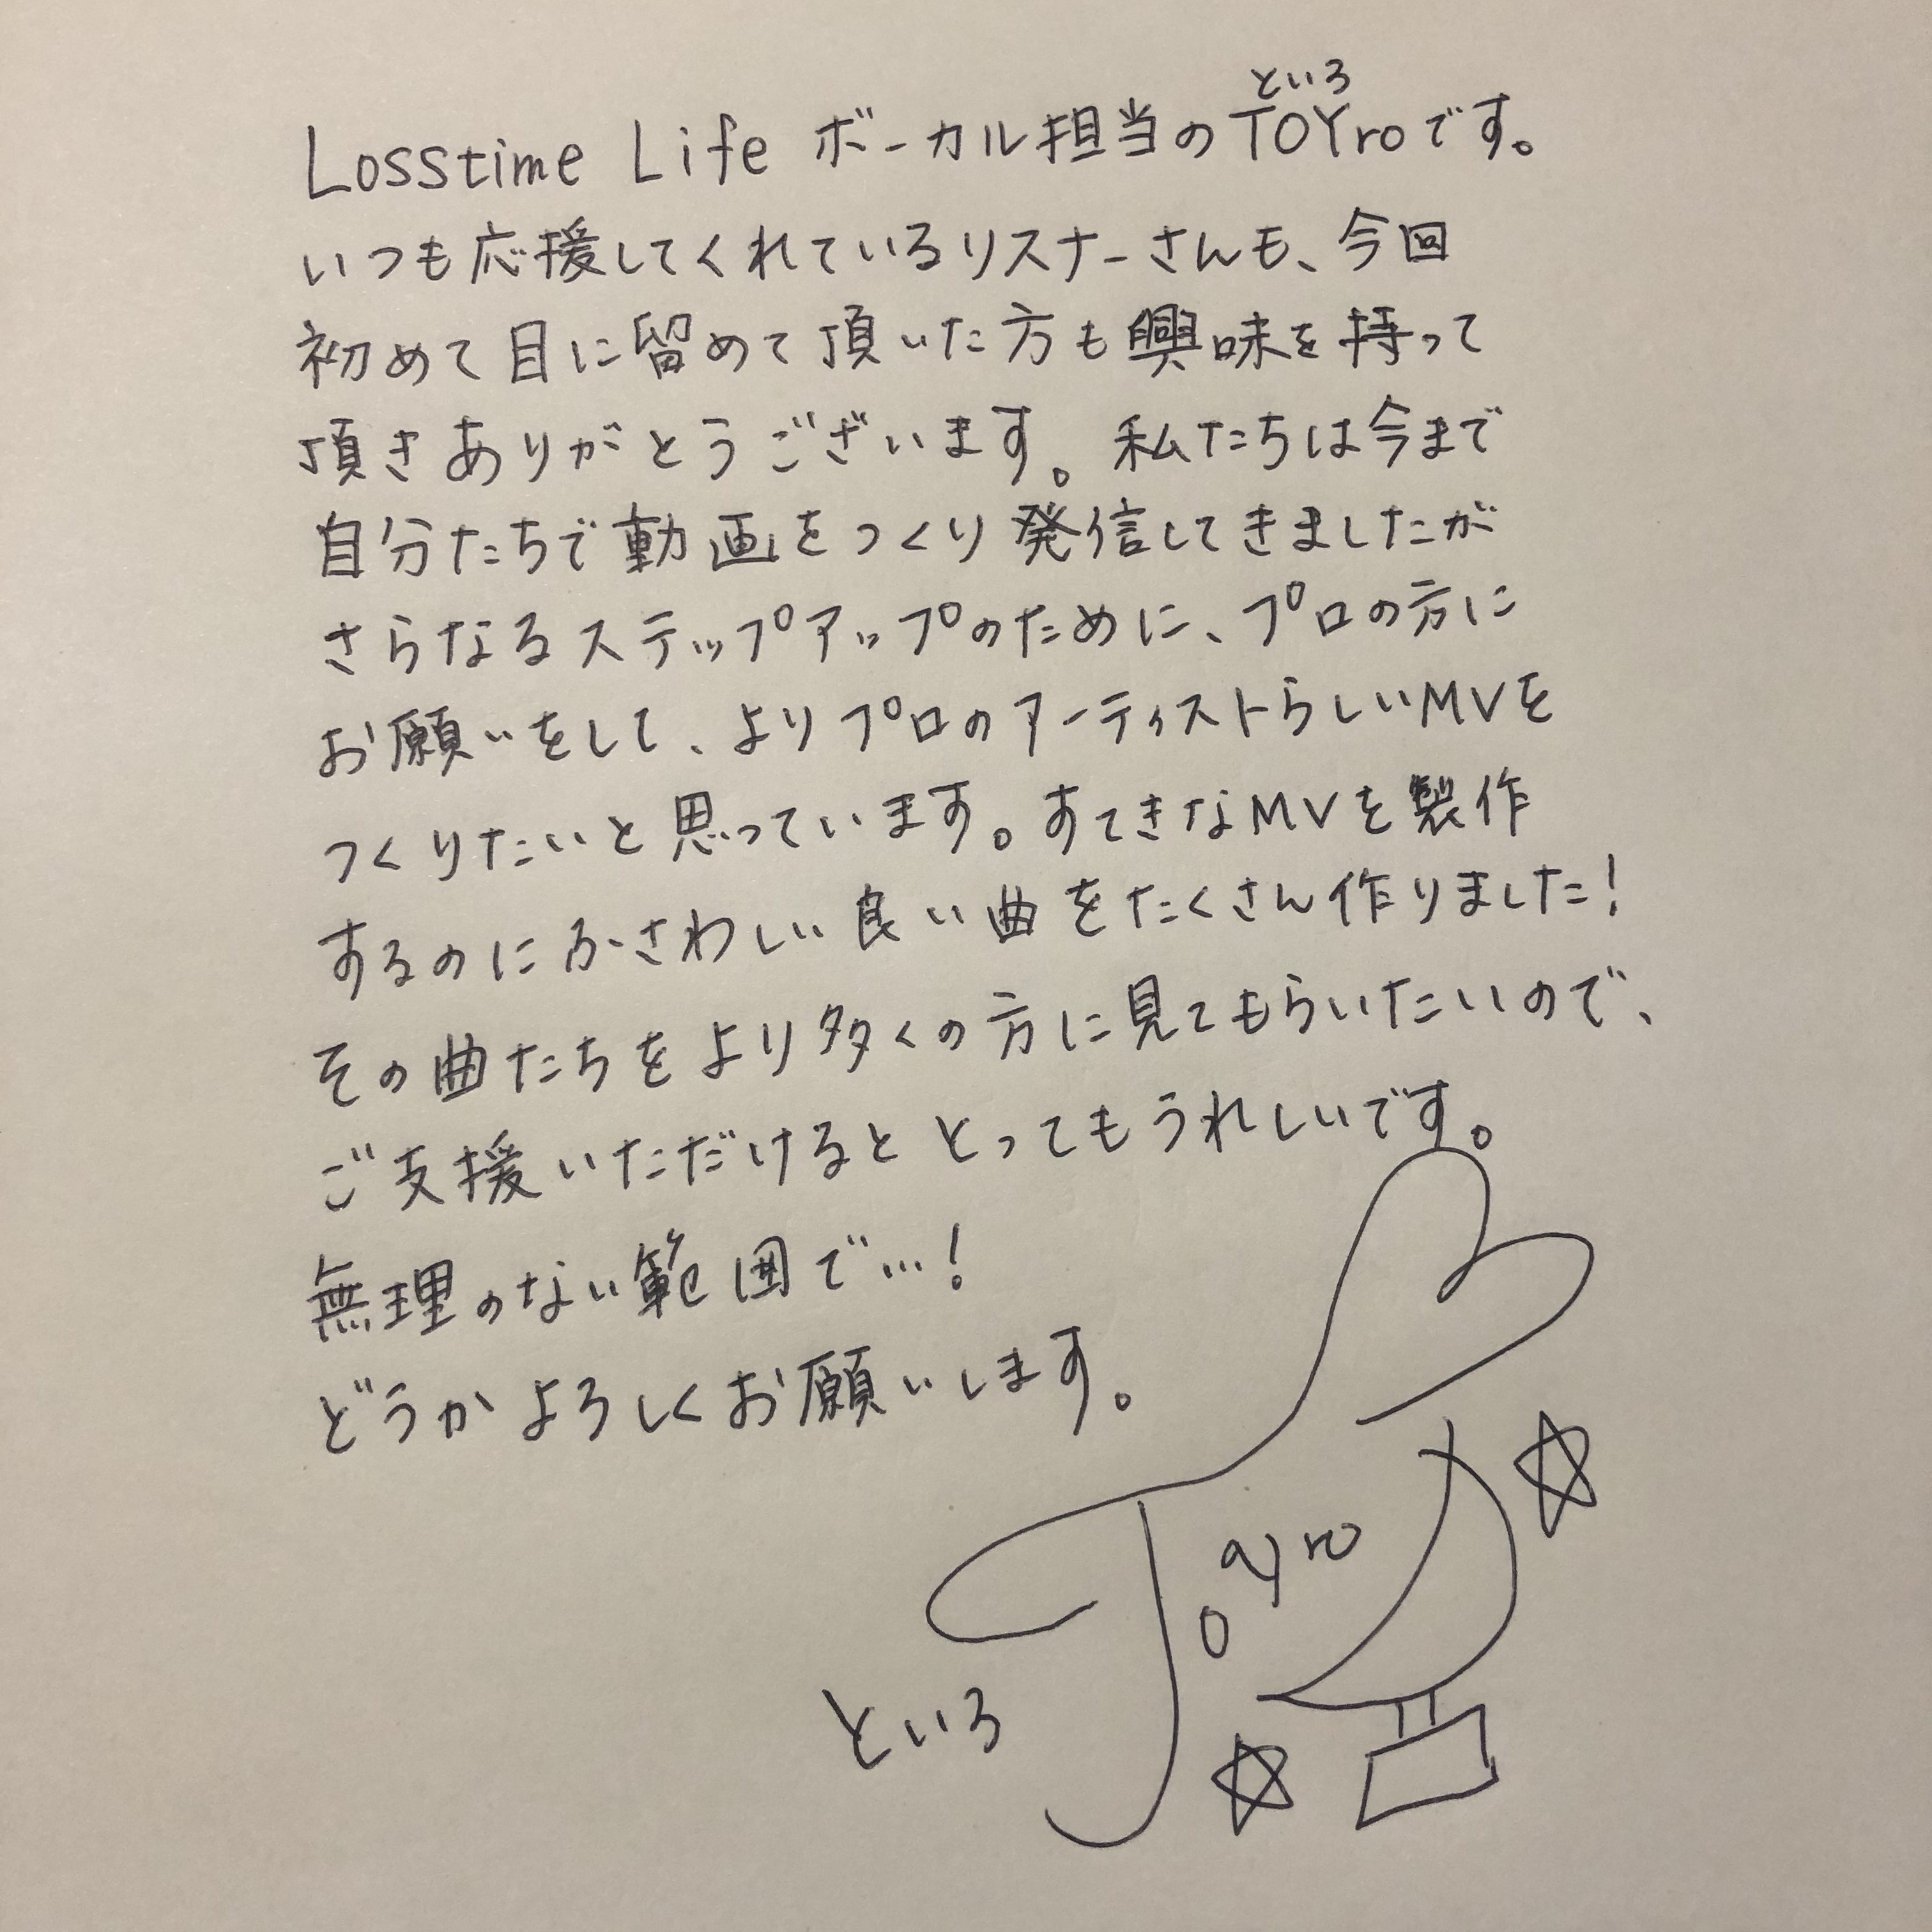 といろ
Losstime Life ボーカル担当のTOYroです。
いつも応援してくれているリスナーさんも、今回
初めて目に留めて頂いた方も興味を持って
頂きありがとうございます。私たちは今まで
自分たちで動画をつくり発信してきましたが
さらなるステップアップのために、プロの方に
お願いをして、よりプロのアーティストらしいMVを
つくりたいと思っています。すてきなMVを製作
するのにふさわしい良い曲をたくさん作りました!
その曲たちをより多くの方に見てもらいたいので、
ご支援いただけるととってもうれしいです。
無理のない範囲で…!
どうかよろしくお願いします。
Toyro
といろ